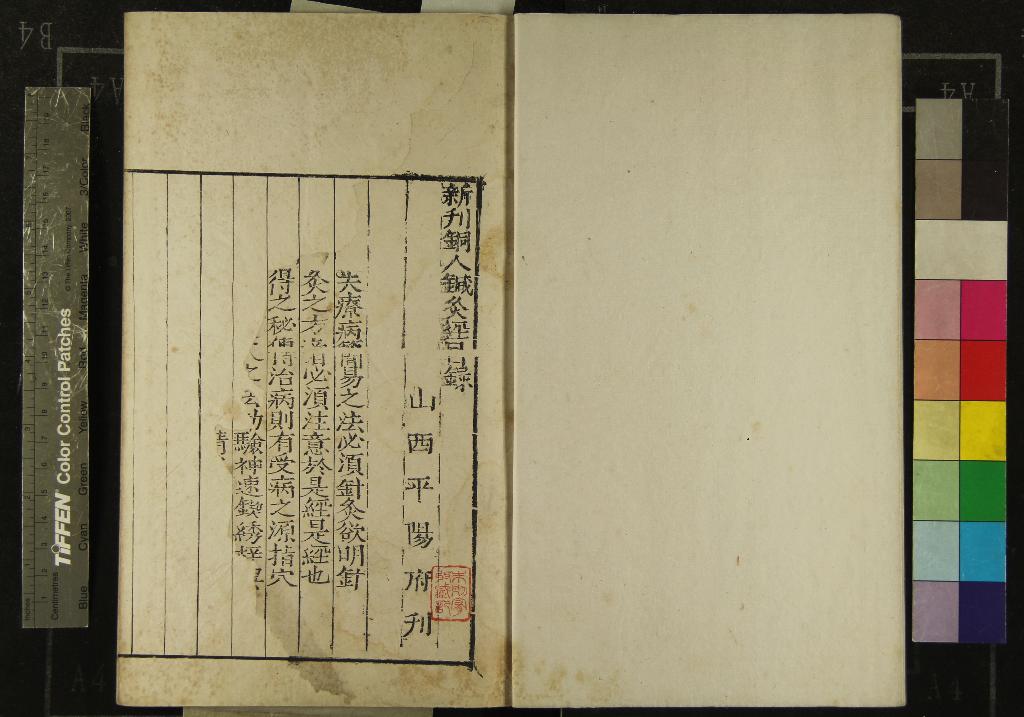 新刋銅人鍼灸經目錄
山西平陽府刋
夫療病簡易之法必須針灸欲明針
灸之方者必須注意於是經是經也
得之秘傳治病則有受病之源指穴
之 功驗神速鋟綉梓
TIFFEN Color Control Patches
© The Tiffen Company, 2007
Inches
Centimetres
Blue
Cyan
Green
Yellow
Red
Magenta
White
3/Color
Black
B4
A4
A4
A4
A4